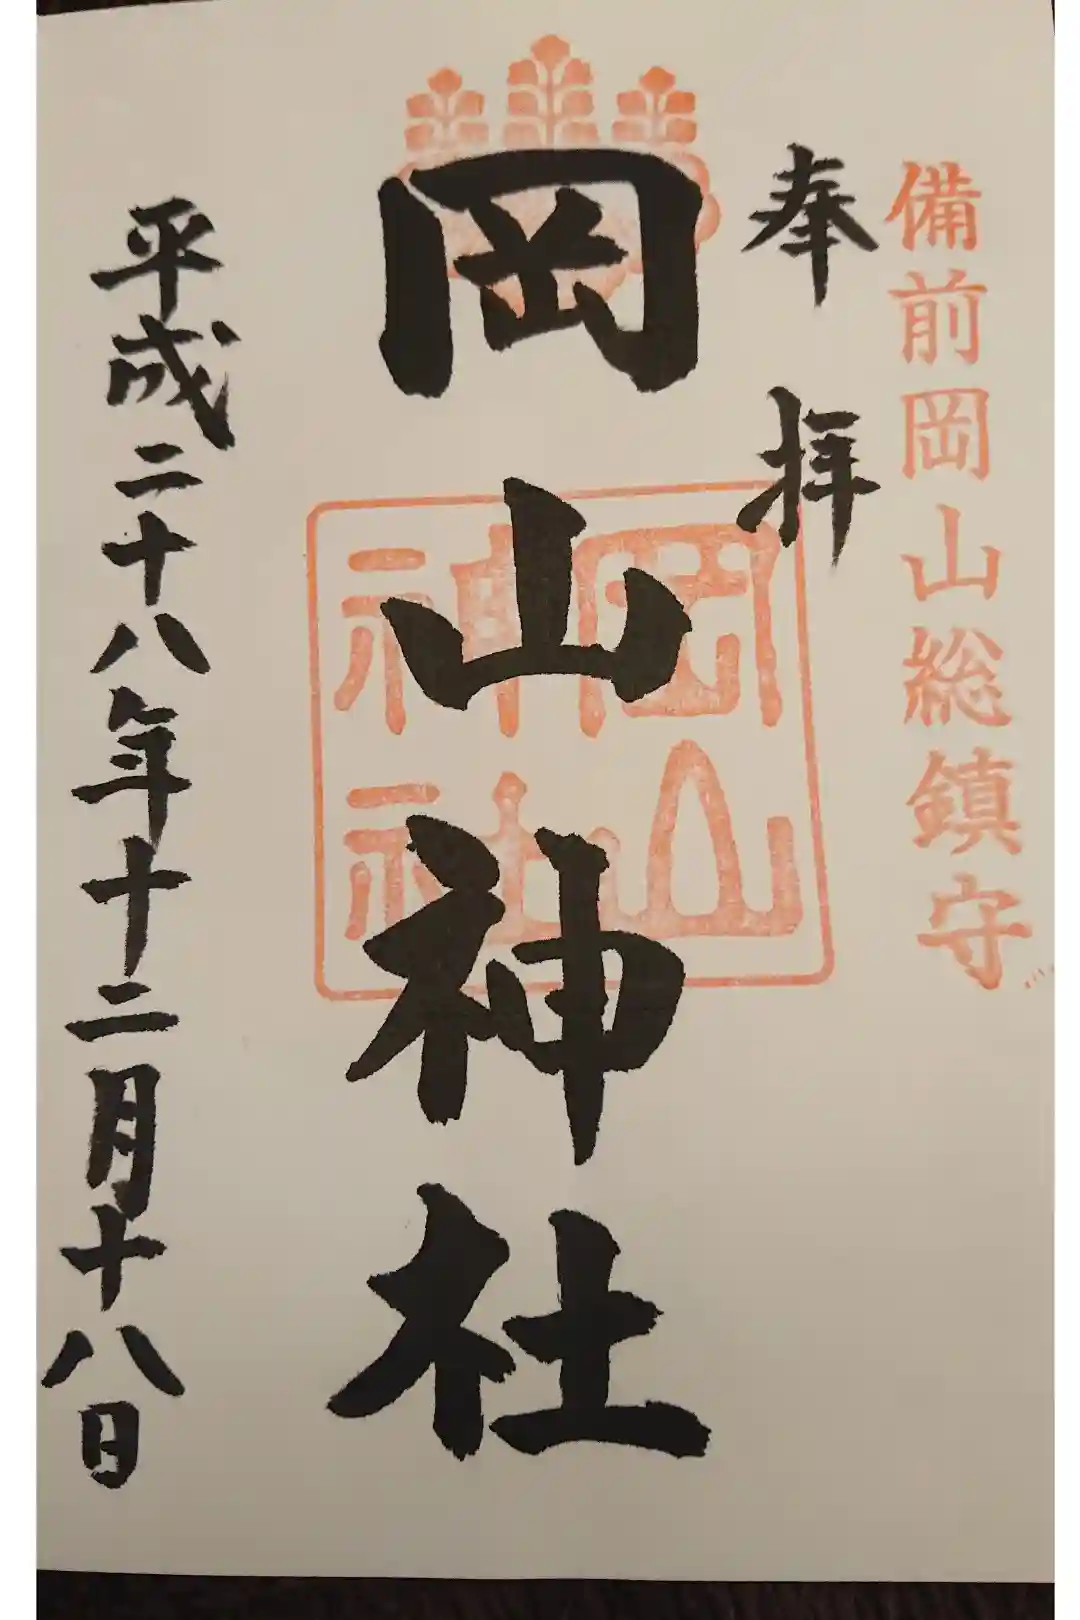 備前岡山総鎮守
奉拝
岡山神社
岡山
神社
平成二十八年十二月十八日